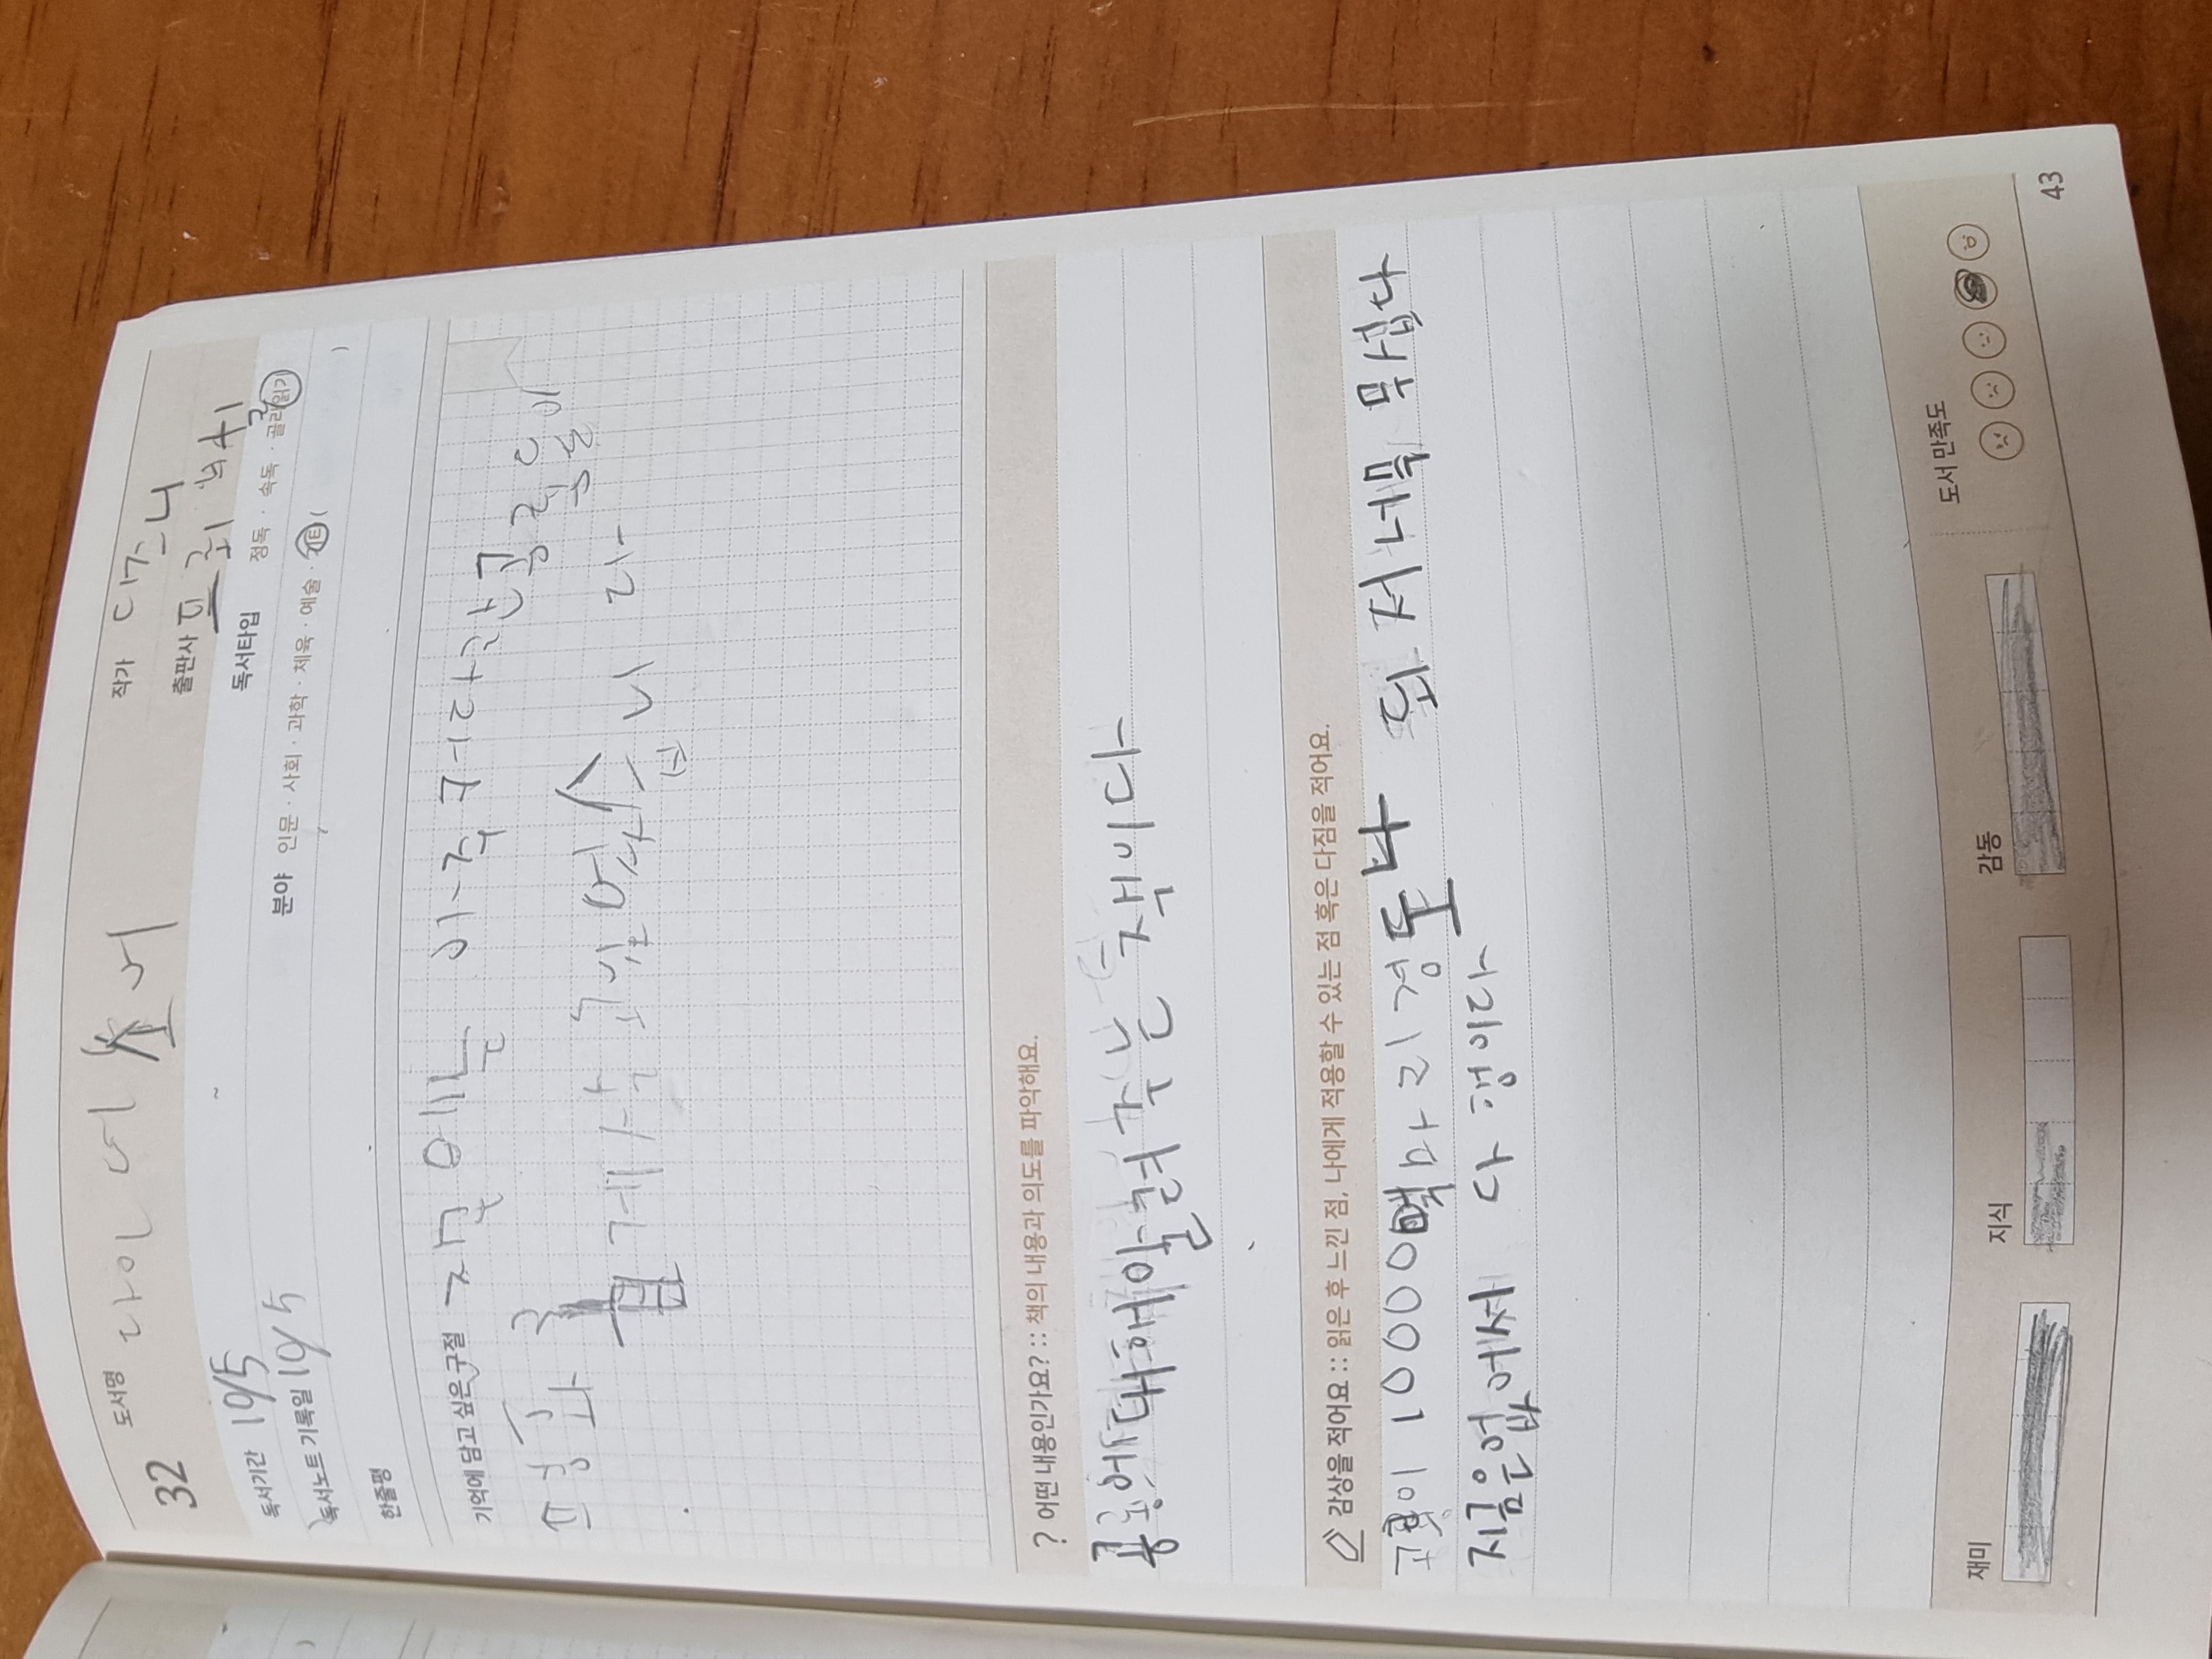 32 도서명 다이너소어 작가 디즈니
출판사 프뢰벨
독서기간 10/5 독서타입 정독 · 속독 · 골라읽기
독서노트 기록일 10/5 분야 인문 · 사회 · 과학 · 체육 · 예술 · 기타 ( )
한줄평
기억에 담고 싶은 구절 저번에는 이 커다란 공룡들이
평화롭게 살고 있었습니다
? 어떤 내용인가요? :: 책의 내용과 의도를 파악해요.
공룡에 대해 알려주는 책이다
감상을 적어요 :: 읽은 후 느낀 점, 나에게 적용할 수 있는 점 혹은 다짐을 적어요.
공룡이 10000마리 정도나 되 저 너무 무섭다
지금은 없어서 다행이다
재미 지식 감동 도서 만족도
43